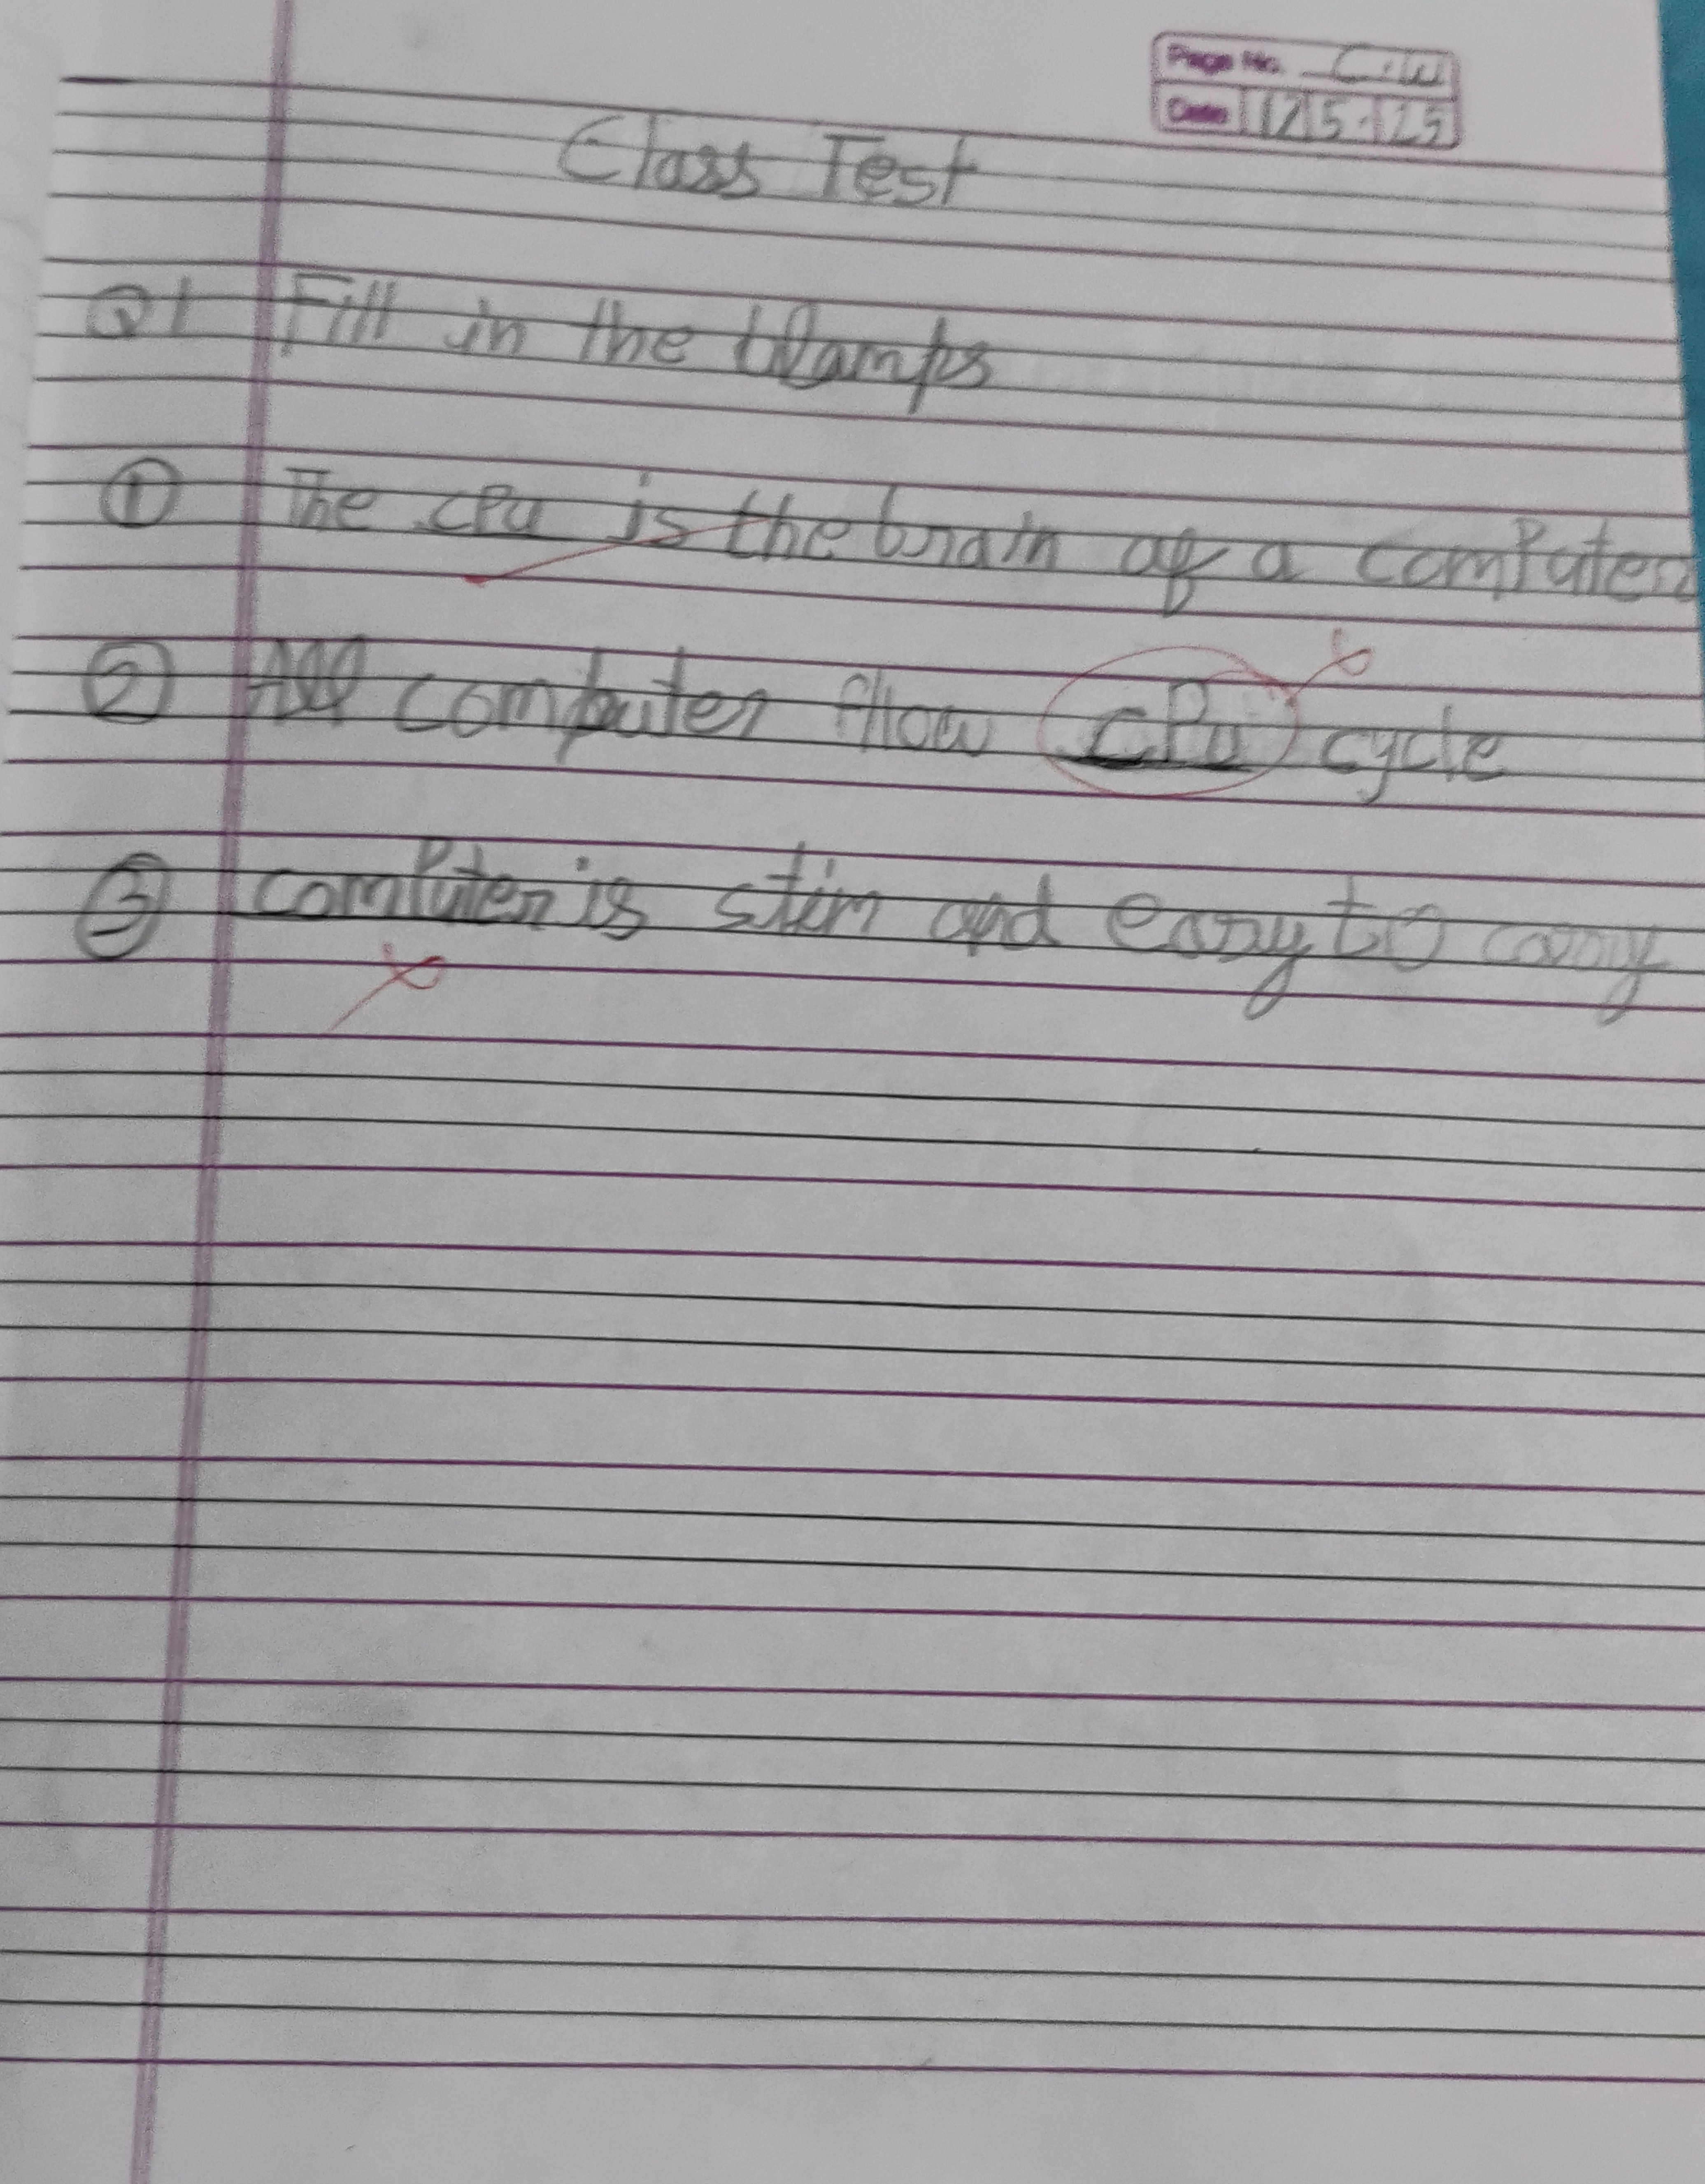 Page No. C.W
Date 12 5 25
Class Test
Q1 Fill in the blamps
① The cpu is the brain of a computer
② All computer fllow CPU cycle
③ computer is slim and easy to carry